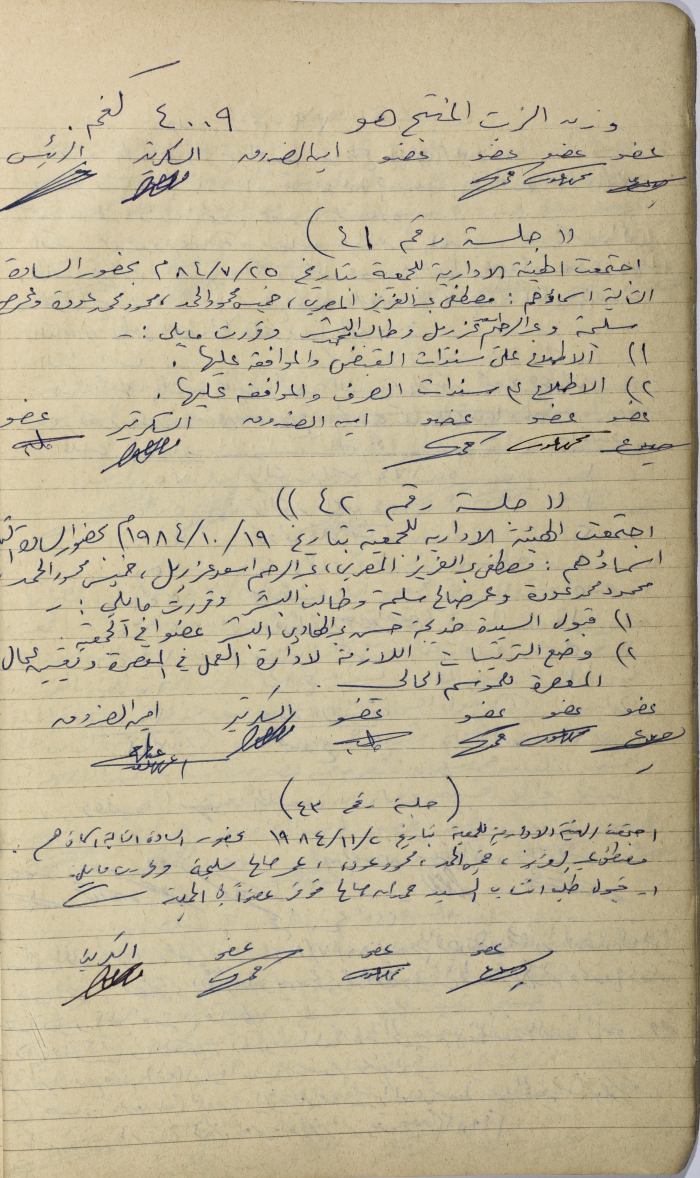 وزن الزيت المنتج هو ٤٠٠٩ كغم.
عضو عضو عضو عضو امين الصندوق السكرتير الرئيس
(( جلسة رقم ٤١ )
اجتمعت الهيئة الادارية للجمعية بتاريخ ٨٤/٧/٢٥م بحضور السادة
التالية اسماؤهم : مصطفى عبد العزيز المصري، خميس محمود الحمد، محمود محمد عودة وعمر صالح
سليمة وعبد الرحيم غزريل وطالب البشر وقررت مايلي :-
١) الاطلاع على سندات القبض والموافقة عليها .
٢) الاطلاع على سندات الصرف والموافقة عليها .
عضو عضو عضو امين الصندوق السكرتير عضو
(( جلسة رقم ٤٢ ))
اجتمعت الهيئة الادارية للجمعية بتاريخ ١٩٨٤/١٠/١٩م بحضور السادة
اسماؤهم : مصطفى عبد العزيز المصري، عبد الرحيم اسعد غزريل، خميس محمود الحمد،
محمود محمد عودة وعمر صالح سليمة وطالب البشر وقررت مايلي :-
١) قبول السيدة خديجة حسن عبد الهادي البشر عضوا في الجمعية .
٢) وضع الترتيبات اللازمة لادارة العمل في المعصرة وتعيين عمال
المعصرة للموسم الحالي
عضو عضو عضو عضو السكرتير امين الصندوق
( جلسة رقم ٤٣ )
اجتمعت الهيئة الادارية للجمعية بتاريخ ١٩٨٤/١١/٢ بحضور السادة التالية اسماؤهم :
مصطفى عبد العزيز ، خميس الحمد ، محمود عودة ، عمر صالح سليمة وقررت مايلي :
١- قبول طلب انتساب السيد صالح عضواً في الجمعية
عضو عضو عضو السكرتير